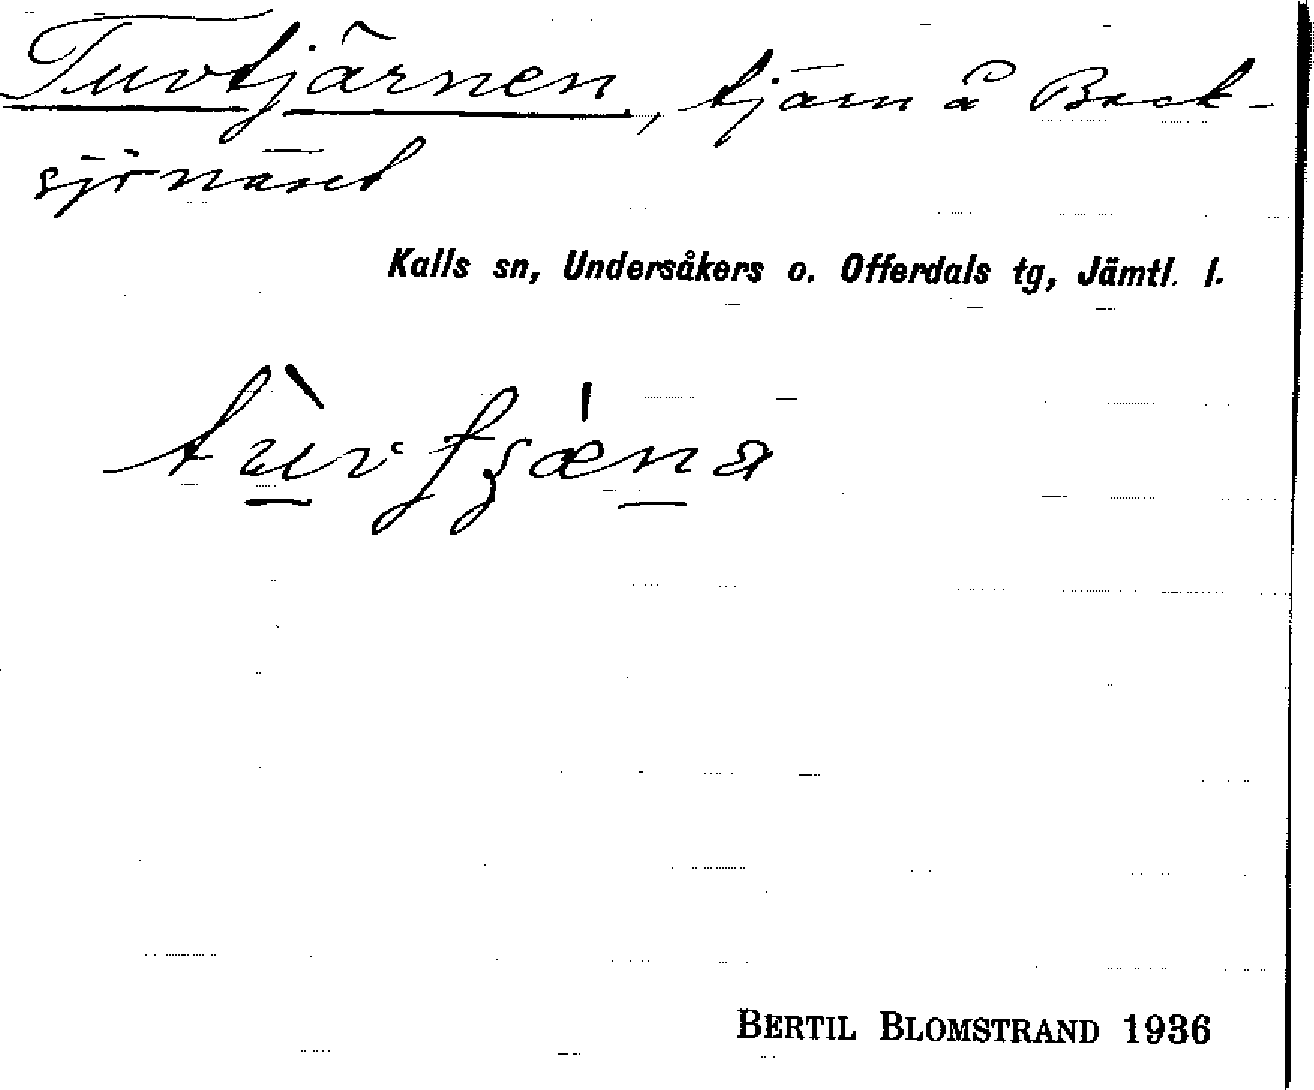 Tuvtjärnen, tjärn å Back-
sjönäset
Kalls sn, Undersåkers o. Offerdals tg, Jämtl. l.
BERTIL BLOMSTRAND 1936